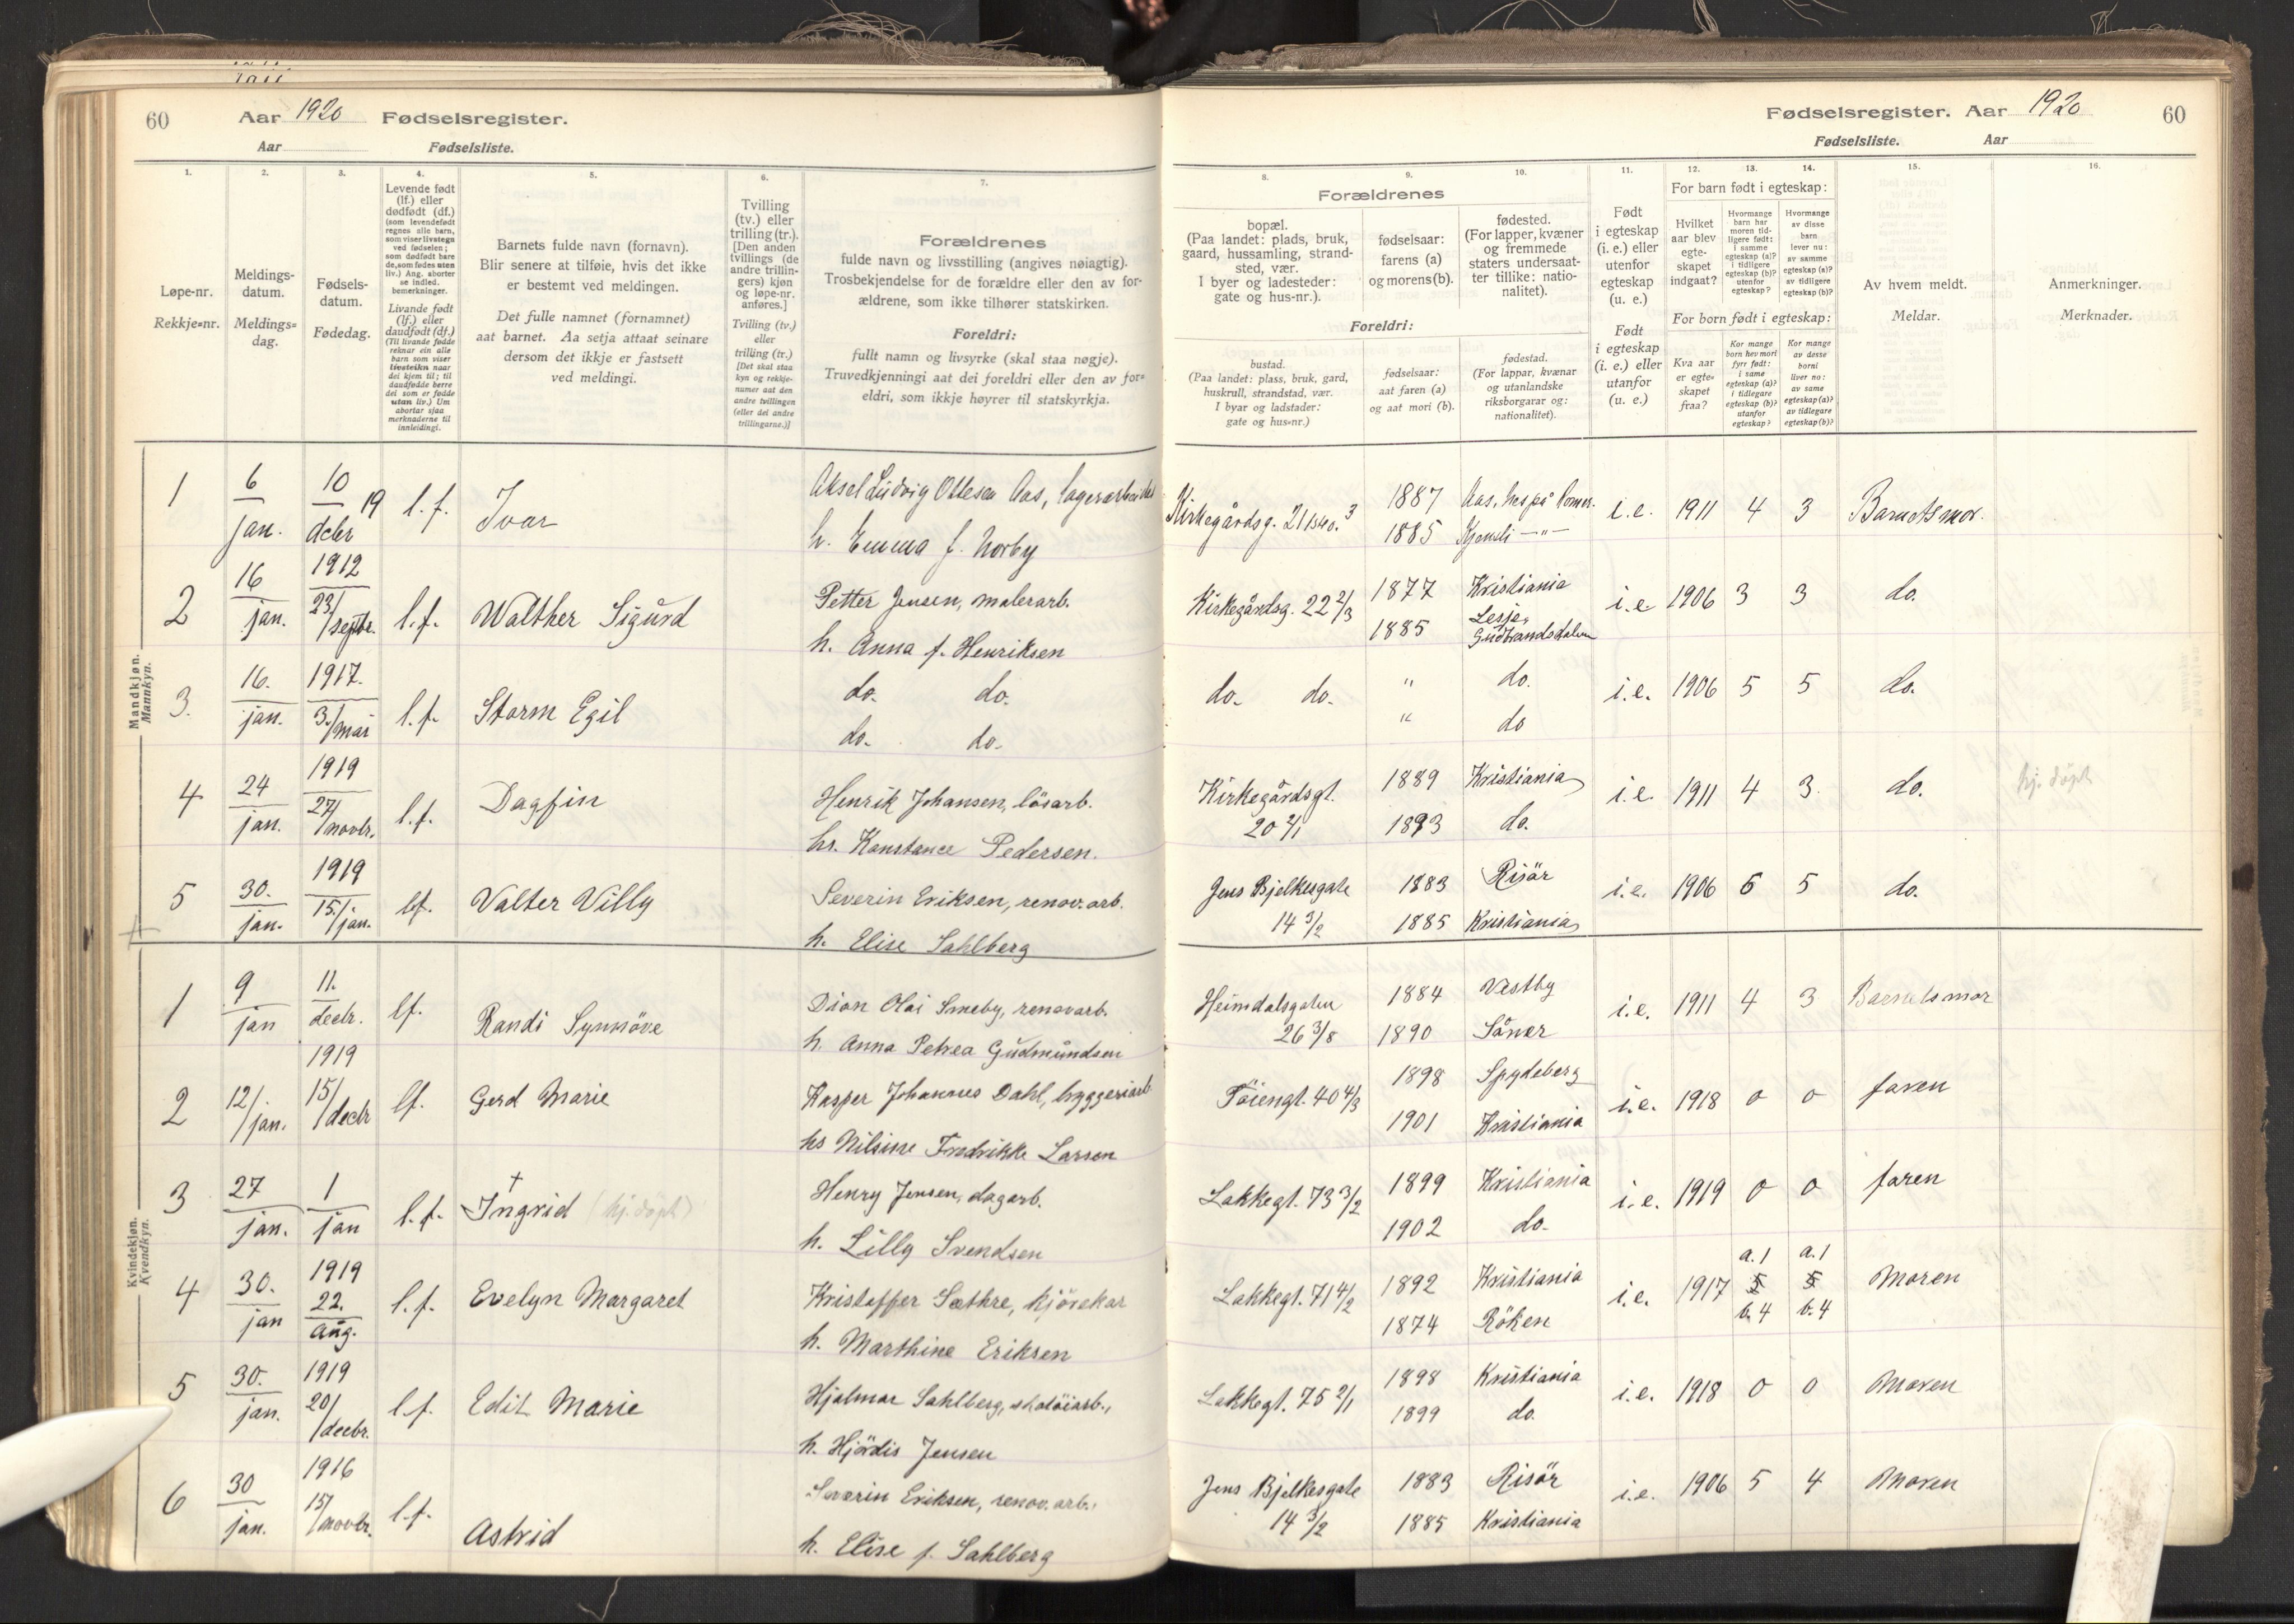 60 Aar 1920 Fødselsregister.
Aar Fødselsliste.
Fødselsregister. Aar 1920 60
Fødselsliste. Aar
1.
Løpe-nr.
Rekkje=nr.
2.
Meldings-
datum.
Meldings=
dag.
3.
Fødsels-
datum.
Fødedag.
4.
Levende født
(lf.) eller
dødfødt (df.)
(som levendefødt
regnes alle barn,
som viser livstegn
ved fødselen;
som dødfødt bare
de, som fødes uten
liv.) Ang. aborter
se indled.
bemerkninger.
Livande født
(lf.) eller
daudfødt (df.)
(Til livande fødde
reknar ein alle
barn som viser
livsteikn naar
dei kjem til; til
daudfødde berre
dei som er fødde
utan liv.) Um
abortar sjaa
merknaderne til
innleidingi.
5.
Barnets fulde navn (fornavn).
Blir senere at tilføie, hvis det ikke
er bestemt ved meldingen.
Det fulle namnet (fornamnet)
aat barnet. Aa setja attaat seinare
dersom det ikkje er fastsett
ved meldingi.
6.
Tvilling
(tv.) eller
trilling (tr.).
[Den anden
tvillings (de
andre trillin-
gers) kjøn
og løpe-nr.
anføres.]
Tvilling (tv.)
eller
trilling (tr.)
[Det skal staa
kyn og rekkje-
numer aat den
andre tvillingen
(eller dei andre
trillingarne.)]
7.
Forældrenes
fulde navn og livsstilling (angives nøiagtig).
Trosbekjendelse for de forældre eller den av for-
ældrene, som ikke tilhører statskirken.
Foreldri:
fullt namn og livsyrke (skal staa nøgje).
Truvedkjenningi aat dei foreldri eller den av for=
eldri, som ikkje høyrer til statskyrkja.
8.
Forældrenes
bopæl.
(Paa landet: plads, bruk,
gaard, hussamling, strand-
sted, vær.
I byer og ladesteder:
gate og hus-nr.).
Foreldri:
bustad.
(Paa landet: plass, bruk, gard,
huskrull, strandstad, vær.
I byar og ladstader:
gate og hus=nr.)
9.
fødselsaar:
farens (a)
og morens (b).
fødselsaar:
aat faren (a)
og aat mori (b).
10.
fødested.
(For lapper, kvæner
og fremmede
staters undersaat-
ter tillike: natio-
nalitet).
fødestad.
(For lappar, kvænar
og utanlandske
riksborgarar og:
nationalitet).
11.
Født
i egteskap
(i. e.) eller
utenfor
egteskap
(u. e.)
Født
i egteskap
(i. e.) eller
utanfor
(u. e.)
12. 13. 14.
For barn født i egteskap:
Hvilket
aar blev
egte-
skapet
indgaat?
Hvormange
barn har
moren tid-
ligere født:
i samme
egteskap (a)?
i tidligere
egteskap (b)?
utenfor
egteskap?
Hvormange
av disse
barn
lever nu:
av samme
egteskap (a)?
av tidligere
egteskap (b)?
For born født i egteskap:
Kva aar
er egte=
skapet
fraa?
Kor mange
born hev mori
fyrr født:
i same
egteskap (a)?
i tidlegare
egteskap (b)?
utanfor
egteskap?
Kor mange
av desse
borni
liver no:
av same
egteskap (a)?
av tidlegare
egteskap (b)?
15.
Av hvem meldt.
Meldar.
16.
Anmerkninger.
Merknader.
Mandkjøn.
Mannkyn.
1 6 jan. 10 decbr 19 l. f. Ivar
Aksel Ludvig Ottesen Aas, lagerarbeider
h. Emma f. Norby
Kirkegårdsg. 21 1887 Aas,
1885
i.e. 1911 4 3 Barnets mor.
2 16 jan. 1912 23/septbr. l.f. Walther Sigurd
Petter Jensen, malerarb.
h. Anna f. Henriksen
Kirkegårdsg. 22 2/3 1877 Kristiania
1885 Lesja, Gudbrandsdalen
i.e. 1906 3 3 do.
3. 16. jan. 1917. 3./mai l.f. Storm Egil
do. do.
do. do.
do. do. " do.
" do
i.e. 1906 5 5 do.
4 24 jan. 1919 27/novbr. l.f. Dagfin
Henrik Johansen, lösarb.
hs. Konstance Pedersen.
Kirkegårdsgt. 1889 Kristiania
20 2/1 1893 do.
i.e. 1911 4 3. do. hj. döpt
5 30. jan. 1919 15./jan. lf. Valter Villy
Severin Eriksen, renov. arb.
h. Elise Sahlberg
Jens Bjelkesgate 1883 Risör
14 3/2 1885 Kristiania
i.e. 1906 6 5 do.
Kvindekjøn.
Kvendkyn.
1 9 jan 11. decbr. 1919 lf. Randi Synnöve
Dion Olai Smeby, renovarb.
h. Anna Petrea Gudmundsen
Heimdalsgaten 1884 Vestby
26 3/8 1890 Såner
i.e. 1911 4 3 Barnets mor
2 12/jan. 15/decbr lf. Gerd Marie
Kasper Johannes Dahl, byggeriarb
hs Nilsine Fredrikke Larsen
Töiengt. 40 4/3 1898 Spydeberg
1901 Kristiania
i.e. 1918 0 0 faren
3 27 jan. 1 jan l.f. † Ingrid (hj. döpt)
Henry Jensen, dagarb.
h. Lilly Svendsen
Lakkegt. 73 3/2 1899 Kristiania
1902 do.
i.e. 1919 0 0 faren
4 30. jan 1919 22. aug. l.f. Evelyn Margaret
Kristoffer Sæthre, kjörekar
h. Marthine Eriksen
Lakkegt. 71 4/2 1892 Kristiania
1874 Röken
i.e. 1917 a. 1 5 b. 4 a. 1 5 b. 4 Moren
5 30. jan. 1919 20/decbr. l.f. Edit Marie
Hjalmar Sahlberg, skotöiarb.,
h. Hjördis Jensen
Lakkegt. 75 2/1 1898 Kristiania
1899 do.
i.e. 1918 0 0 Moren
6 30 jan. 1916 15/novbr. l.f. Astrid
Severin Eriksen, renov. arb.,
h. Elise f. Sahlberg
Jens Bjelkesgate 1883 Risör
14 3/2 1885 Kristiania
i.e. 1906 5 4 Moren